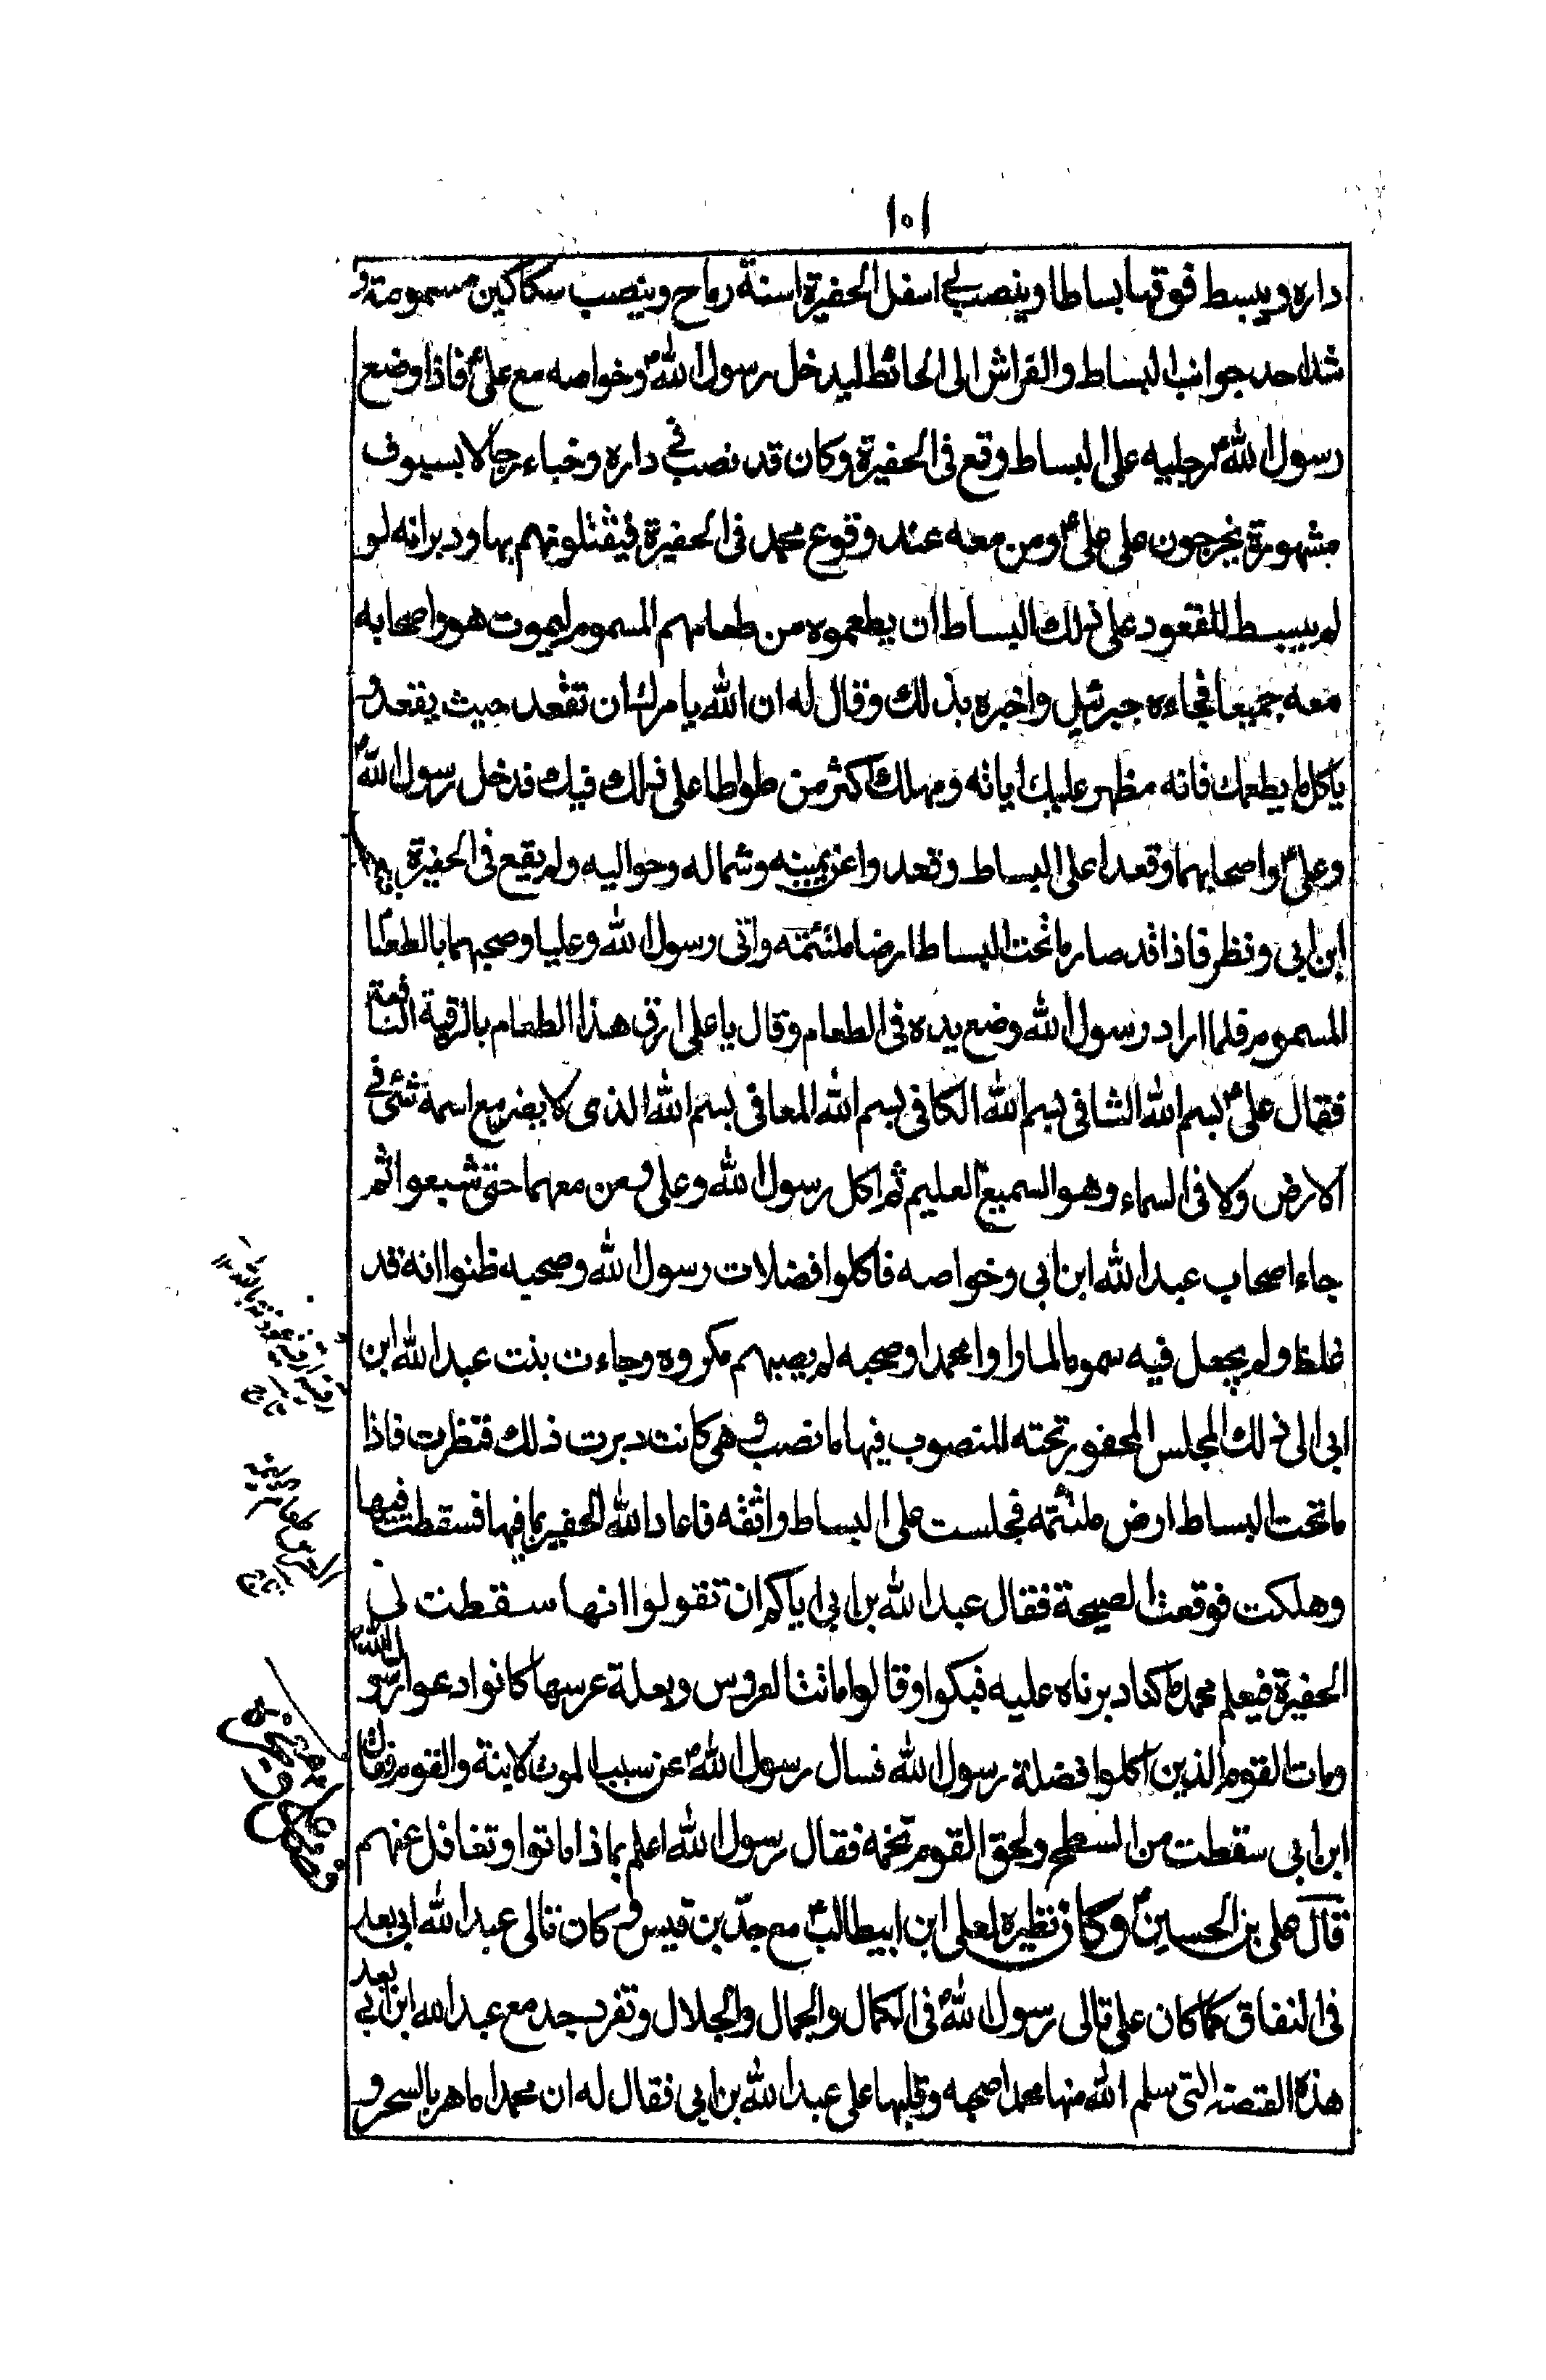 ١٠١
داره ويبسط فوقها بساطا وينصب في اسفل الحفيرة اسنة رماح وينصب سكاكين مسمومة و
شد احد جوانب البساط والفراش الى الحائط ليدخل رسول الله ص وخواصه مع على ع فاذا وضع
رسول الله ص رجليه على البساط وقع فى الحفيرة وكان قد نصب فى داره وخباء رجالا بسيوف
مشهورة يخرجون على على ع ومن معه عند وقوع محمد فى الحفيرة فيقتلونهم بها ودبر انه لو
لم يبسط للقعود على ذلك البساط ان يطعموه من طعامهم المسموم ليموت هو واصحابه
معه جميعا فجاءه جبرئيل واخبره بذلك وقال له ان الله يامرك ان تقعد حيث يقعدك و
ياكل ما يطعمك فانه مظهر عليك اياته ومهلك اكثر من طواطا على ذلك فيك فدخل رسول الله ص
وعلى ع واصحابهما وقعدا على البساط وقعدوا عن يمينه وشماله وحواليه ولم يقع فى الحفيرة
ابن ابي ونظر فاذا قد صار ماتحت البساط ارضا ملتئمة واتى رسول الله وعليا وصحبهما بالطعام
المسموم فلما اراد رسول الله وضع يده فى الطعام وقال يا على ارق هذا الطعام بالرقية النافعة
فقال على ع بسم الله الشافى بسم الله الكافى بسم الله المعافى بسم الله الذى لا يضر مع اسمه شئ في
الارض ولا فى السماء وهو السميع العليم ثم اكل رسول الله وعلى ومن معهما حتى شبعوا ثم
جاء اصحاب عبد الله ابن ابى وخواصه فاكلوا فضلات رسول الله وصحبه ظنوا انه قد
غلط ولم يجعل فيه سموما لما راوا محمدا وصحبه لم يصبهم مكروه وجاءت بنت عبد الله ابن
ابى الى ذلك المجلس المحفور تحته المنصوب فيها ما نصب وهى كانت دبرت ذلك فنظرت فاذا
ما تحت البساط ارض ملتئمه فجلست على البساط واثقه فاعاد الله الحفير بما فيها فسقطت فيها
وهلكت فوقعت الصيحة فقال عبد الله بن ابي اياكم ان تقولوا انها سقطت فى
الحفيرة فيعلم محمد ما كنا دبرناه عليه فبكوا وقالوا ماتت العروس وبعلة عرسها كانوا دعوا رسول الله ص
ومات القوم الذين اكلوا فضلة رسول الله فسال رسول الله ص عن سبب الموت لابنة والقوم فقال
ابن ابى سقطت من السطح ولحق القوم تخمة فقال رسول الله اعلم بماذا ماتوا وتغافل عنهم
قال على بن الحسين ع وكان نظيره لعلى ابن ابيطالب ع مع جد بن قيس وكان تالى عبد الله ابى بعد
فى النفاق كما كان على تالى رسول الله ص فى الكمال والجمال والجلال وتفرد جد مع عبد الله ابن ابي بعد
هذه القصة التى سلم الله منها محمدا صحبه وقلبها على عبد الله بن ابي فقال له ان محمدا ماهر بالسحر و